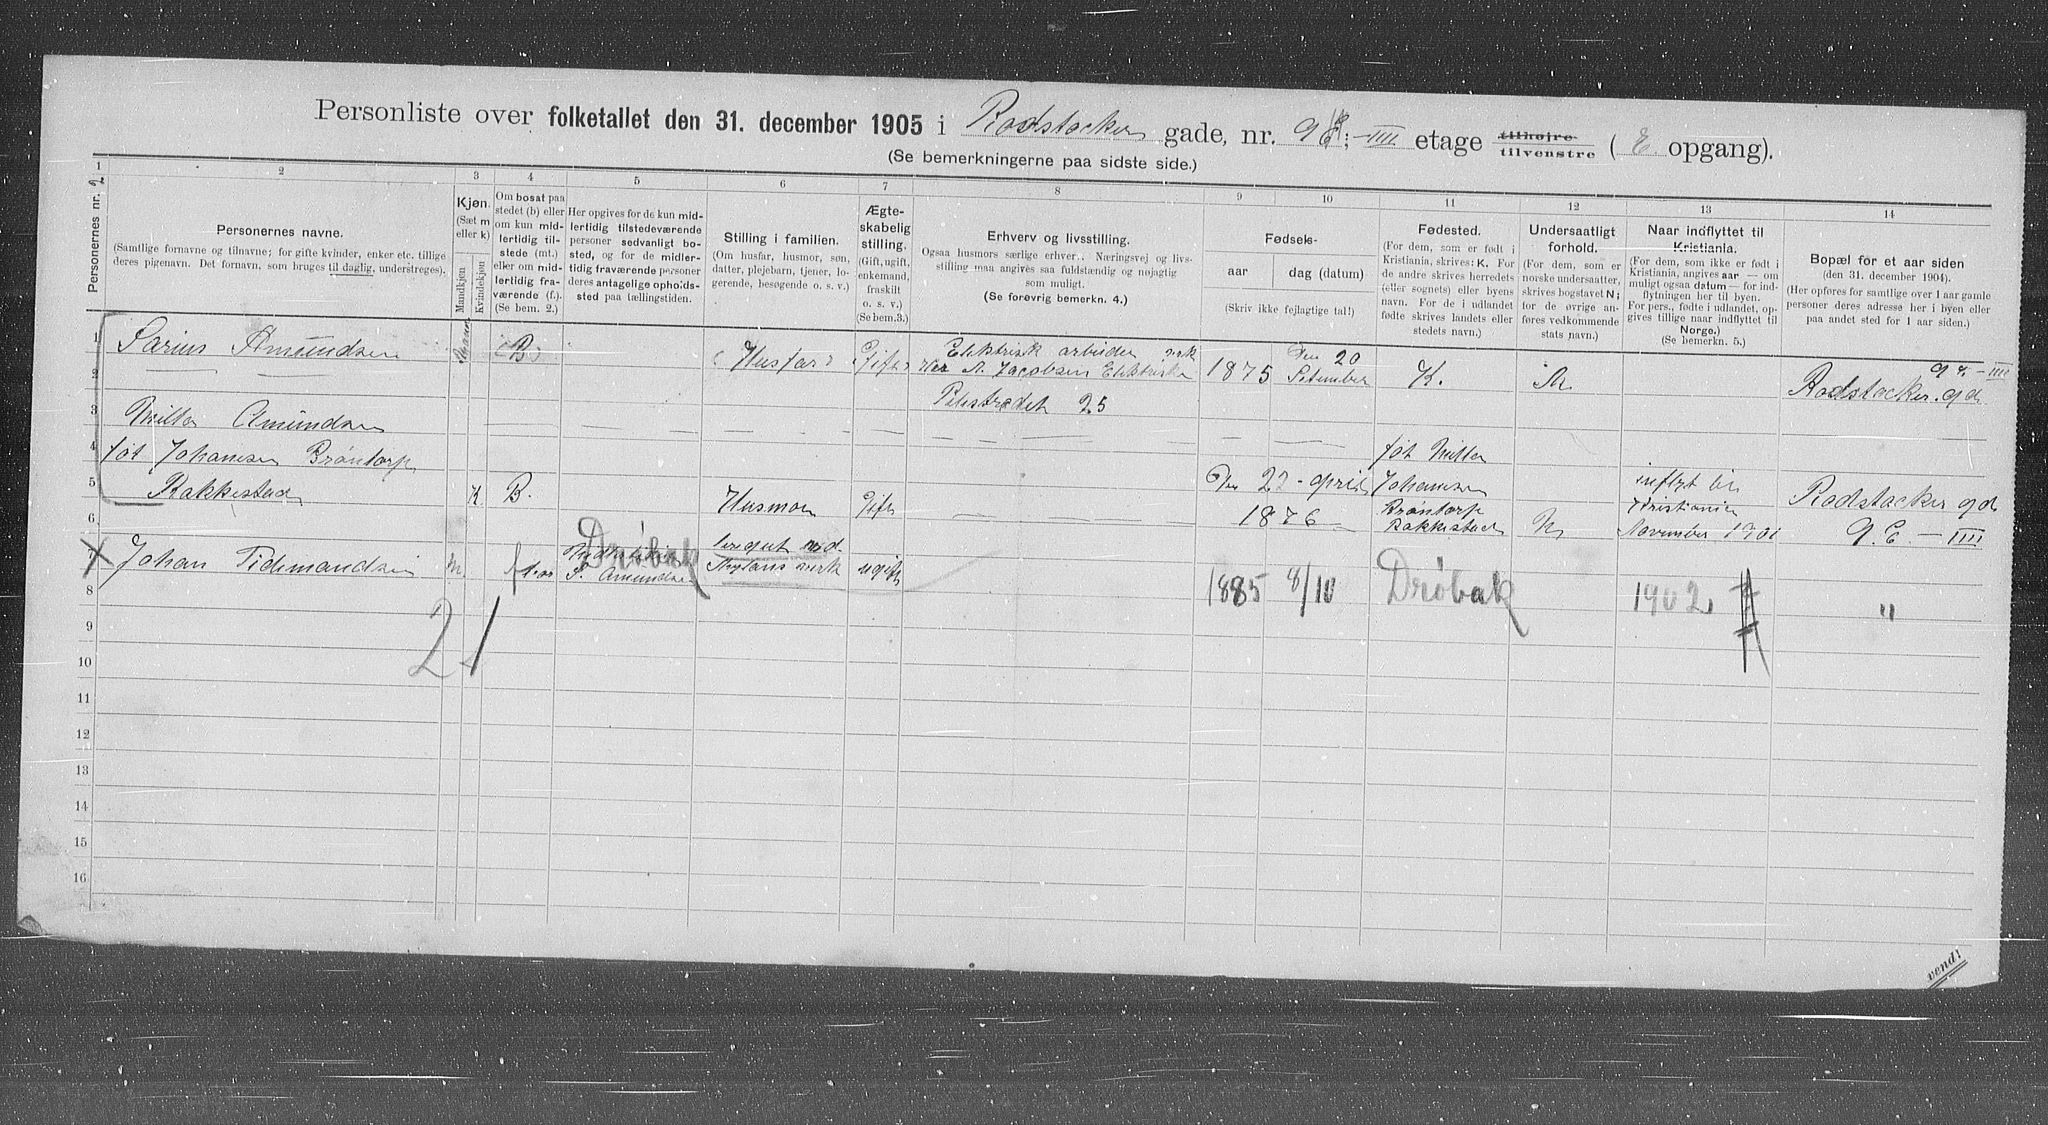 Personliste over folketallet den 31. december 1905 i Rodstocker gade, nr. 9 E; IIII etage tilhøire tilvenstre ( E opgang).
(Se bemerkningerne paa sidste side.)
1 2 3 4 5 6 7 8 9 10 11 12 13 14
Personernes nr. 2
Personernes navne.
(Samtlige fornavne og tilnavne; for gifte kvinder, enker etc. tillige
deres pigenavn. Det fornavn, som bruges til daglig, understreges).
Kjøn.
(Sæt m
eller k)
Mandkjøn
Kvindekjøn
Om bosat paa
stedet (b) eller
om kun mid-
lertidig til-
stede (mt.)
eller om mid-
lertidig fra-
værende (f.).
(Se bem. 2.)
Her opgives for de kun mid-
lertidig tilstedeværende
personer sedvanlig bo-
sted, og for de midler-
tidig fraværende personer
deres antagelige ophold-
sted paa tællingstiden.
Stilling i familien.
(Om husfar, husmor, søn,
datter, plejebarn, tjener, lo-
gerende, besøgende o. s. v.)
Ægte-
skabelig
stilling.
(Gift, ugift,
enkemand,
fraskilt
o. s. v.)
(Se bem.3.)
Erhverv og livsstilling.
Ogsaa husmors særlige erhver. Næringsvej og livs-
stilling maa angives saa fuldstændig og nøjagtig
som muligt.
(Se forøvrig bemerkn. 4.)
Fødsels-
aar dag (datum)
(Skriv ikke fejlagtige tal!)
Fødested.
(For dem, som er født i
Kristiania, skrives: K. For
de andre skrives herredets
(eller sognets) eller byens
navn. For de i udlandet
fødte skrives landets eller
stedets navn.)
Undersaatligt
forhold.
(For dem, som er
norske undersaatter,
skrives bogstavet N;
for de øvrige an-
føres vedkommende
stats navn.)
Naar indflyttet til
Kristiania.
(For dem, som ikke er født i
Kristiania, angives aar — om
muligt ogsaa datum — for ind-
flytningen her til byen.
For pers., fødte i udlandet, op-
gives tillige naar indflyttet til
Norge.)
(Se bemerkn. 5.)
Bopæl for et aar siden
(den 31. december 1904).
(Her opføres for samtlige over 1 aar gamle
personer deres adresse her i byen eller
paa andet sted for 1 aar siden.)
1 Sarius Amundsen B Husfar Gift Elektrisk arbeider Den 20 9 E - IIII
2 A. Jacobsen Elektriske 1875 Setember K. N. Rodstocker. gd
3 Milla Amundsen Pilestrædet 25
4 føt Johansen Brøntorp føt Milla
5 Rakkestad K B. Husmor Gift Den 22 - april Johansen inflyt til Rodstocker gd
6 1876 Brøntorp Rakkestad N Kristiania November 1901 9. E. - IIII
7 X Johan Tidemandsen m. f Drøbak S. Amundsen ugift
8 1885 8/10 Drøbak 1902 "
9 21
10
11
12
13
14
15
16
vend!